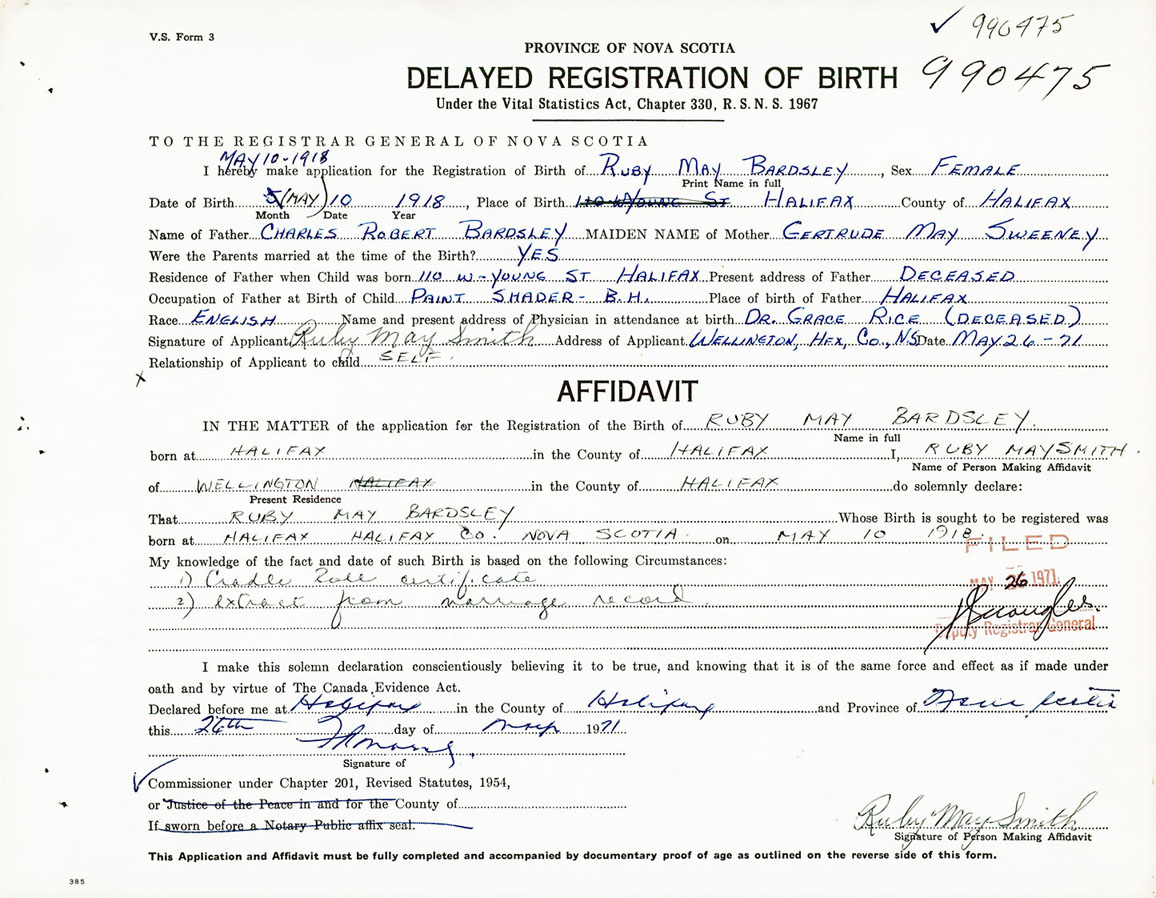 V.S. Form 3
✓ 990475
PROVINCE OF NOVA SCOTIA
DELAYED REGISTRATION OF BIRTH 990475
Under the Vital Statistics Act, Chapter 330, R.S.N.S. 1967
TO THE REGISTRAR GENERAL OF NOVA SCOTIA
MAY 10-1918
I hereby make application for the Registration of Birth of RUBY MAY BARDSLEY, Sex FEMALE
Print Name in full
Date of Birth 5 (MAY) 10 1918, Place of Birth 110 W YOUNG ST HALIFAX County of HALIFAX
Month Date Year
Name of Father CHARLES ROBERT BARDSLEY MAIDEN NAME of Mother GERTRUDE MAY SWEENEY
Were the Parents married at the time of the Birth? YES
Residence of Father when Child was born 110 W-YOUNG ST HALIFAX Present address of Father DECEASED
Occupation of Father at Birth of Child PAINT SHADER - B.H. Place of birth of Father HALIFAX
Race ENGLISH Name and present address of Physician in attendance at birth DR. GRACE RICE (DECEASED)
Signature of Applicant Ruby May Smith Address of Applicant WELLINGTON, HFX, CO., NS Date MAY 26-71
Relationship of Applicant to child SELF
X
AFFIDAVIT
IN THE MATTER of the application for the Registration of the Birth of RUBY MAY BARDSLEY.
Name in full
born at HALIFAX in the County of HALIFAX I, RUBY MAY SMITH.
Name of Person Making Affidavit
of WELLINGTON HALIFAX in the County of HALIFAX do solemnly declare:
Present Residence
That RUBY MAY BARDSLEY Whose Birth is sought to be registered was
born at HALIFAX HALIFAX CO. NOVA SCOTIA. on MAY 10 1918.
FILED
My knowledge of the fact and date of such Birth is based on the following Circumstances:
1) Cradle Roll certificate
MAY 26 1971
2) extract from marriage record
Deputy Registrar General
I make this solemn declaration conscientiously believing it to be true, and knowing that it is of the same force and effect as if made under
oath and by virtue of The Canada Evidence Act.
Declared before me at Halifax in the County of Halifax and Province of Nova Scotia
this 26th day of May 1971
Signature of
✓ Commissioner under Chapter 201, Revised Statutes, 1954,
or Justice of the Peace in and for the County of
If sworn before a Notary Public affix seal.
Ruby May Smith
Signature of Person Making Affidavit
This Application and Affidavit must be fully completed and accompanied by documentary proof of age as outlined on the reverse side of this form.
385